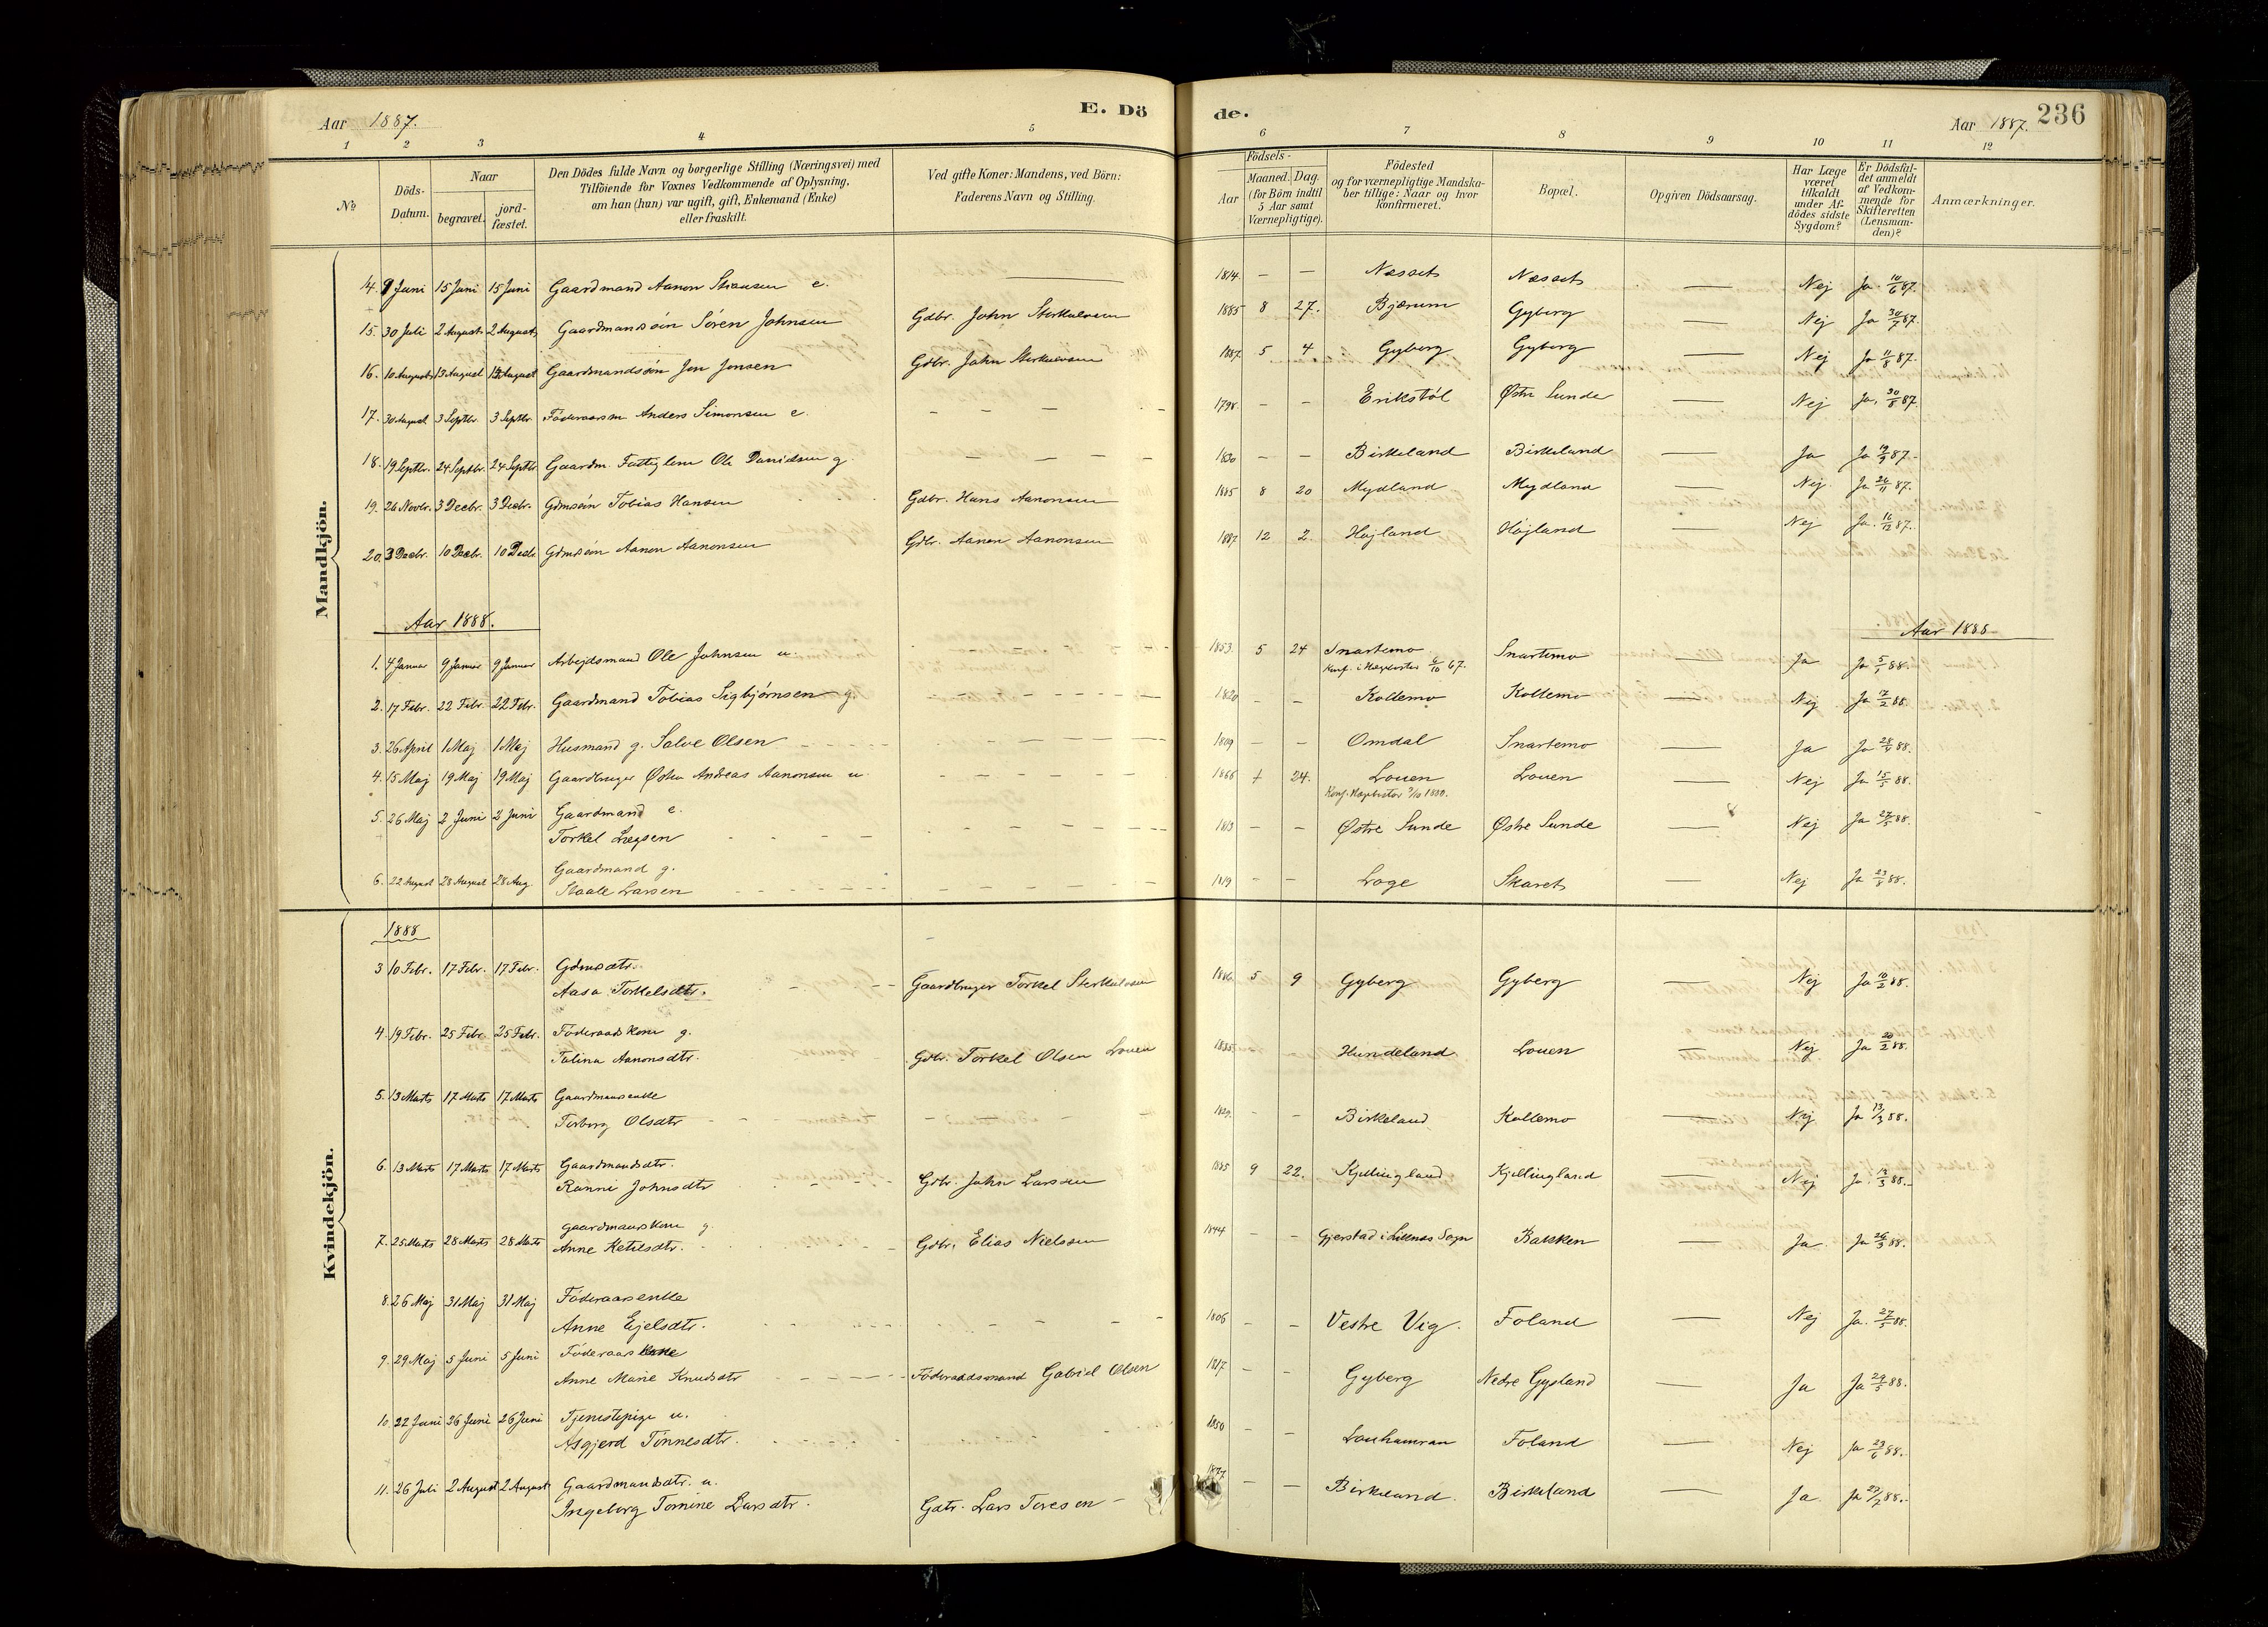 E. Dö de.
236
Aar 1887.
Aar 1887.
1 2 3 4 5 6 7 8 9 10 11 12
№
Döds-Datum.
Naar
begravet.
jord-fæstet.
Den Dödes fulde Navn og borgerlige Stilling (Næringsvei) med
Tilföiende for Voxnes Vedkommende af Oplysning,
om han (hun) var ugift, gift, Enkemand (Enke)
eller fraskilt.
Ved gifte Koner: Mandens, ved Börn:
Faderens Navn og Stilling.
Födsels-
Aar
Maaned. Dag.
(for Börn indtil
5 Aar samt
Værnepligtige).
Födested
og for værnepligtige Mandska-
ber tillige: Naar og hvor
konfirmeret.
Bopæl.
Opgiven Dödsaarsag.
Har Læge
været
tilkaldt
under Af-
dödes sidste
Sygdom?
Er Dödsfal-
det anmeldt
af Vedkom-
mende for
Skifteretten
(Lensman-
den)?
Anmærkninger.
Mandkjön.
14. 9 Juni 15 Juni 15 Juni Gaardmand Aanon e. 1814. — — Næsset Næsset — Nej Ja 10/6 87.
15. 30 Juli 2 August 2 August Gaardmandsön Sören Johnsen Gdbr. John Sterkulvsen 1885 8 27. Bjærum Gyberg — Nej Ja 30/7 87.
16. 10 August 13 August 13 August Gaardmandssön Jon Jonsen Gdbr. John Sterkulvsen 1887 5 4 Gyberg Gyberg — Nej Ja 11/8 87.
17. 30 August 3 Septbr. 3 Septbr. Föderaadsm Anders Simonsen e. — — — 1798. — — Erikstöl Østre Sunde Nej Ja. 30/8 87.
18. 19 Septbr. 24 Septbr. 24 Septbr. Gaardm. Fattiglem Ole Danielsen g. — — — — 1830 — — Birkeland Birkeland — Ja Ja 19/9 87.
19. 26 Novbr. 3 Decbr. 3 Decbr. Gdmsön Tobias Hansen Gdbr. Hans Aanonsen 1885 8 20 Mydland Mydland — Nej. Ja 26/11 87.
20. 3 Decbr. 10 Decbr. 10 Decbr Gdmsön Aanon Aanonsen Gdbr. Aanon Aanonsen 1887 12 2 Højland Højland — Nej Ja. 16/12 87.
Aar 1888.
Aar 1888
1. 4 Januar 9 Januar 9 Januar Arbejdsmand Ole Johnsen u. 1853. 5 24 Snartemo Snartemo — Ja Ja 5/1 88.
Konf. i Hægebostad 6/10 67.
2. 17 Febr. 22 Febr. 22 Febr. Gaardmand Tobias Sigbjörnsen g. 1820 — — Kollemo Kollemo — Nej Ja 17/2 88.
3. 26 April 1 Maj 1 Maj Husmand g. Salve Olsen 1809 — — Omdal Snartemo — Ja Ja 28/4 88.
4. 15 Maj 19 Maj 19 Maj Gaardbruger Østen Andreas Aanonsen u. 1866 24. Louen Louen — Nej Ja 15/5 88.
Konf. Hægebostad 3/10 1880.
5. 26 Maj 2 Juni 2 Juni Gaardmand e.
Torkel 1813 — — Østre Sunde Østre Sunde — Nej Ja 27/5 88.
Gaardmand g.
6. 22 August 28 August 28 Aug. Staale Larsen 1819 — — Loge Skaret — Nej Ja 23/8 88.
Kvindekjön.
1888
3 10 Febr. 17 Febr. 17 Febr. Gdmsdtr.
Aasa Torkelsdtr. Gaardbruger Torkel Sterkulvsen 1886. 5 9 Gyberg Gyberg — Nej Ja 10/2 88.
4. 19 Febr. 25 Febr. 25 Febr. Föderaadskone g.
Talina Aanonsdtr. Gdbr. Torkel Olsen Louen 1835 Hundeland Louen — Nej Ja 20/2 88.
5. 13 Marts 17 Marts 17 Marts Gaardmandsenke
Torborg Olsdtr 1829. — — Birkeland Kollemo — Nej Ja 13/3 88.
6. 13 Marts 17 Marts 17 Marts Gaardmandsdtr.
Ranni Johnsdtr Gdbr. John Larsen 1885 9 22. Kjellingland Kjellingland — Nej Ja. 13/3 88.
gaardmandskone g.
7. 25 Marts 28 Marts 28 Marts Anne Ketilsdtr. Gdbr. Elias Nielssen 1844 — — Gjerstad i Sogn Bakken — Ja. Ja 26/3 88.
8. 26 Maj 31 Maj 31 Maj Föderaadsenke
Anne Ejelsdtr. 1806 — — Vestre Vig. Foland — Nej Ja. 27/5 88.
9. 29 Maj 5 Juni 5 Juni Föderaadskone
Anne Marie Knudsdtr Föderaadsmand Gabriel Olsen 1817 — — Gyberg Nedre Gysland — Ja Ja 29/5 88.
10. 22 Juni 26 Juni 26 Juni Tjenestepige u.
Asgjerd Tönnesdtr. 1850 — — Foland — Nej Ja 23/6 88.
11. 26 Juli 2 August 2 August Gaardmandsdtr. u.
Ingeborg Tomine Larsdtr. Gdbr. Lars Toresen — — Birkeland. Birkeland — Ja. Ja 27/7 88.